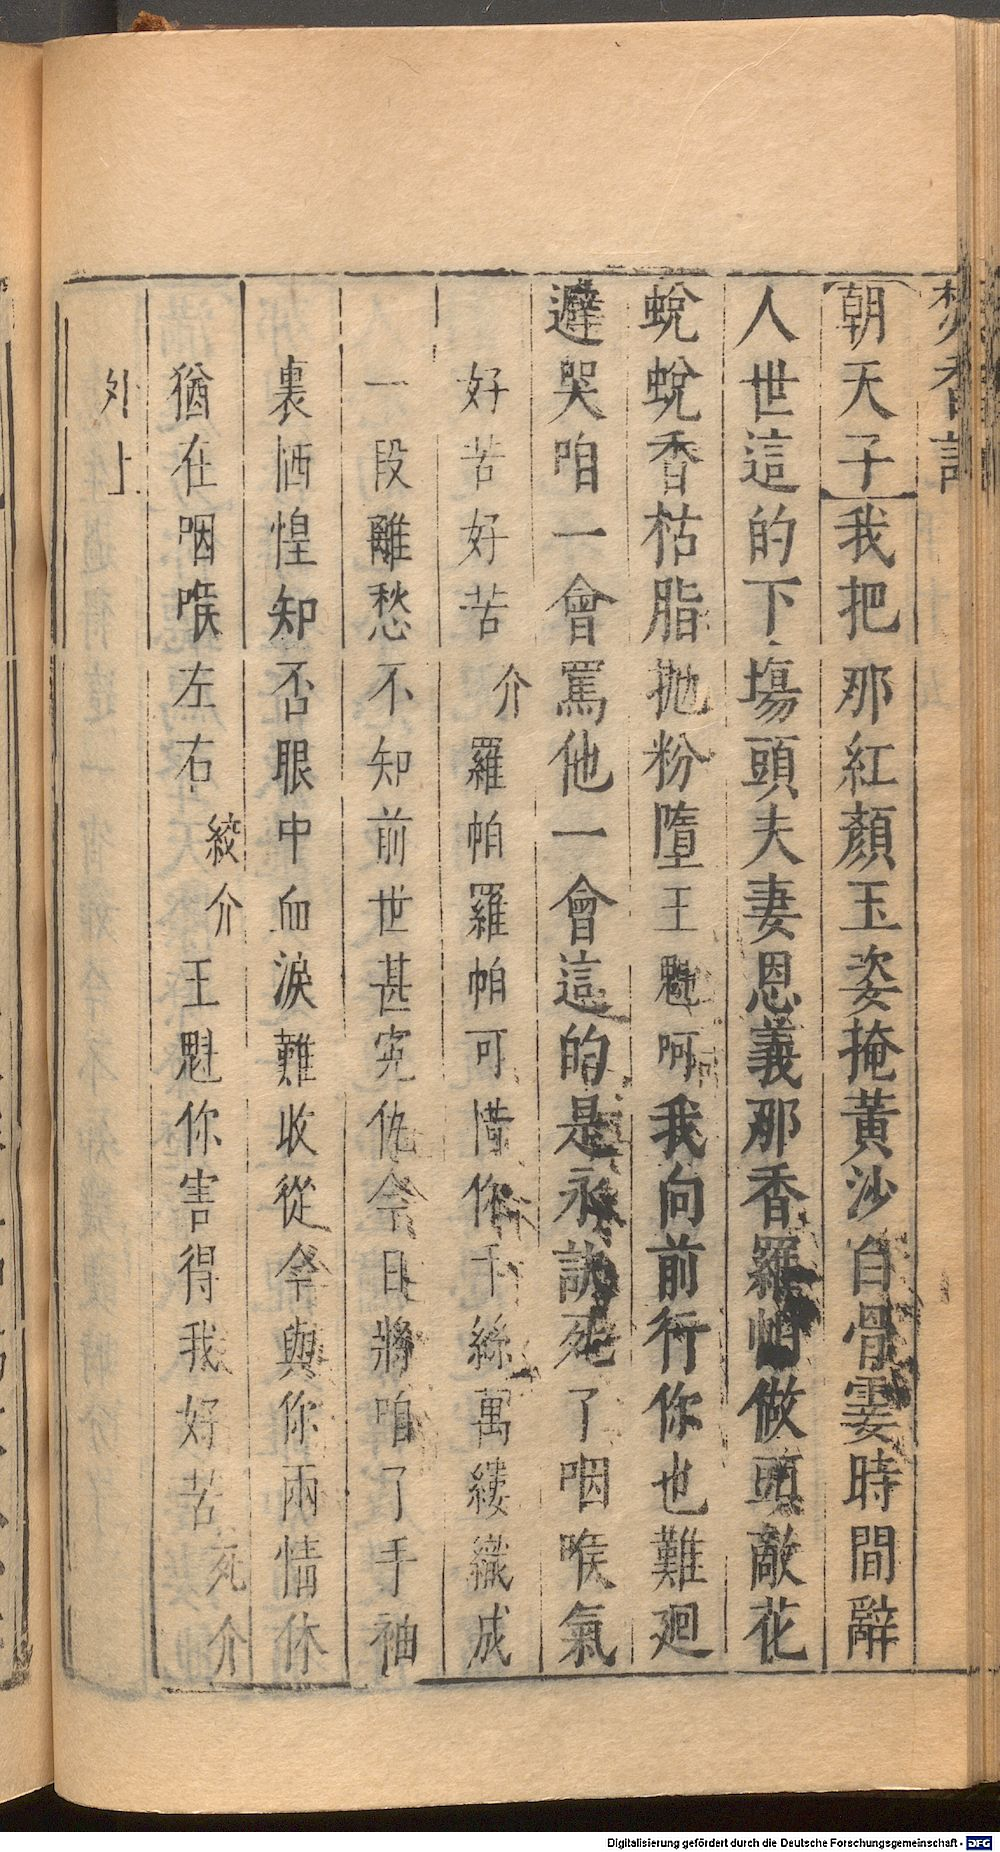 焚香記
朝天子我把那紅顏玉姿掩黃沙白骨霎時間辭
人世這的下塲頭夫妻恩義那香羅帕做頭敵花
蛻蛻香枯脂抛粉墮王魁呵我向前行你也難廻
避哭咱一會罵他一會這的是永訣死了咽喉氣
好苦好苦介羅帕羅帕可惜你千絲萬縷織成
一段離愁不知前世甚寃仇今日將咱了手袖
裏恓惶知否眼中血淚難收從今與你兩情休
猶在咽喉左右絞介王魁你害得我好苦死介
外上
Digitalisierung gefördert durch die Deutsche Forschungsgemeinschaft - DFG